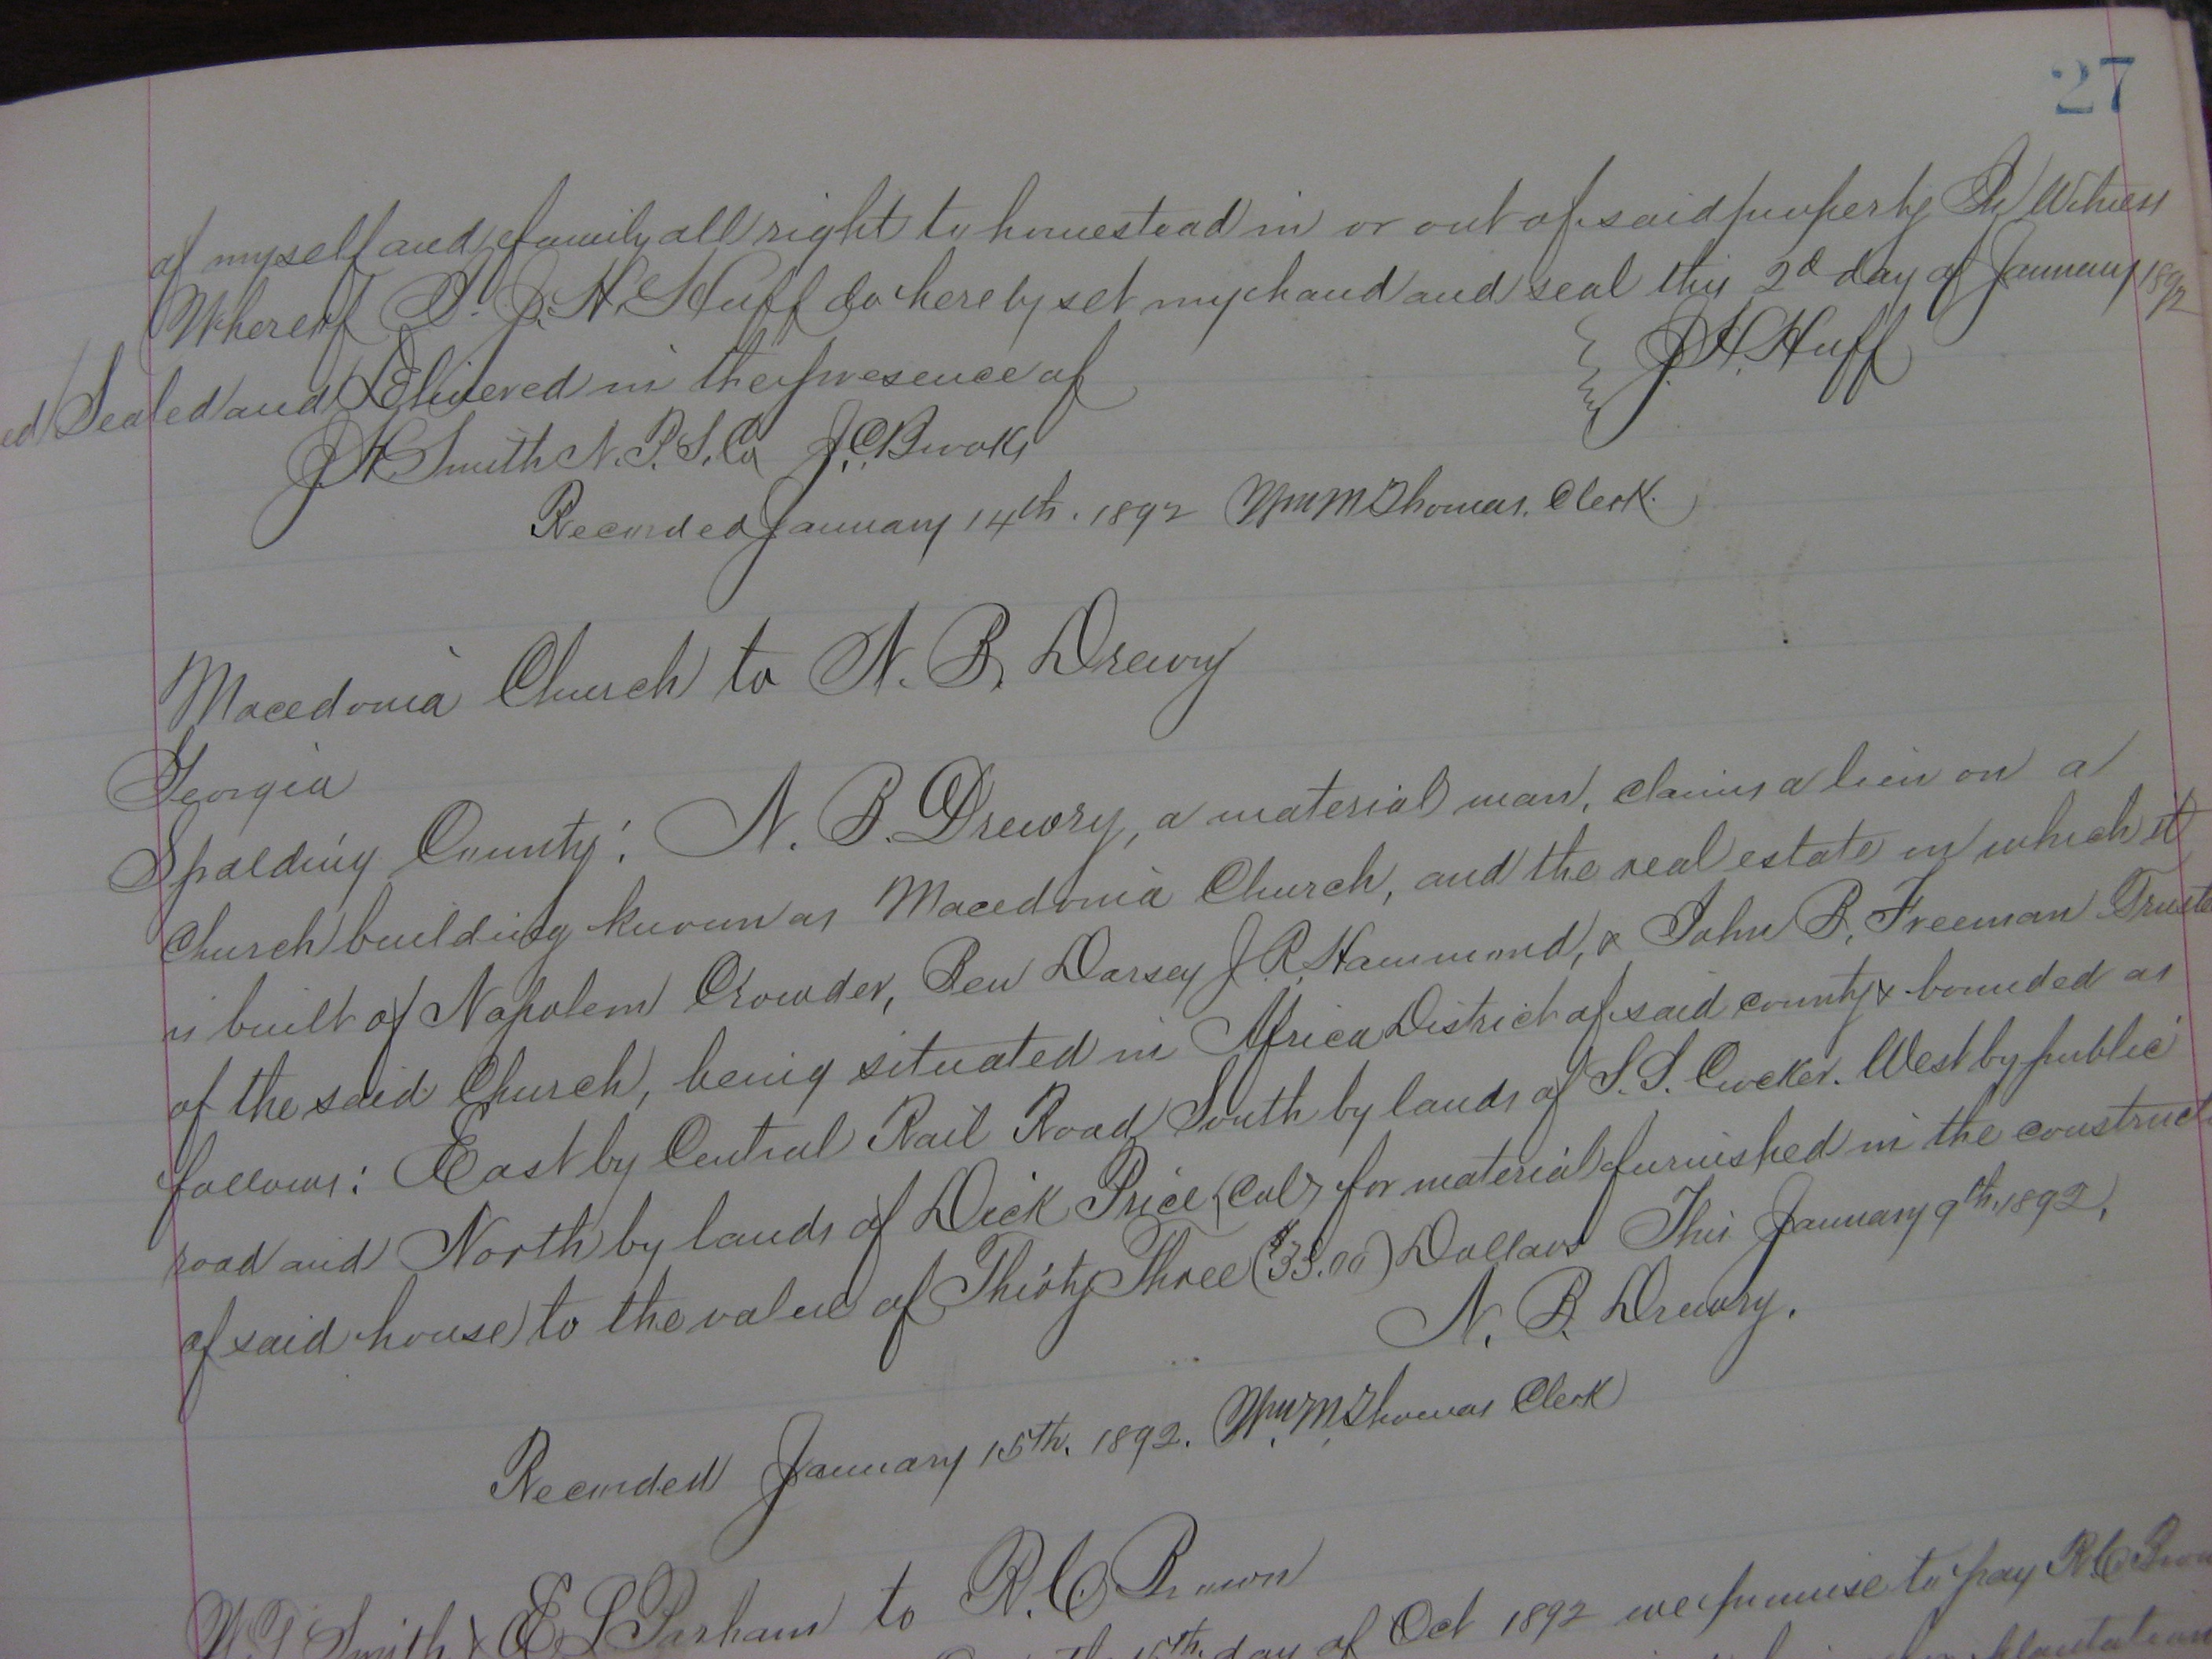 27
of myself and family all right to homestead in or out of said property In Witness
Whereof I. J. H. Huff do hereby set my hand and seal this 2d day of January 1892
ed Sealed and Delivered in the presence of J. H. Huff
J H Smith N. P. S. Co J. C. Brooks
Recorded January 14th. 1892 Wm M Thomas. Clerk.
Macedonia Church to N. B. Drewry
Georgia
Spalding County: N. B. Drewry, a material man, claims a lien on a
Church building known as Macedonia Church, and the real estate on which it
is built of Napoleon Crowder, Ben Dorsey J. R. Hammond, & John B. Freeman Truste
of the said Church, being situated in Africa District of said county & bounded as
follows: East by Central Rail Road South by lands of S. S. Crocker. West by public
road and North by lands of Dick Price (Col) for material furnished in the construct
of said house to the value of Thirty Three ($33.00) Dollars This January 9th, 1892.
N. B. Drewry.
Recorded January 15th. 1892. Wm. M. Thomas Clerk
Smith & E L Parham to R. C Brown
15th day of Oct 1892 we promise to pay R. C Brow
plantation